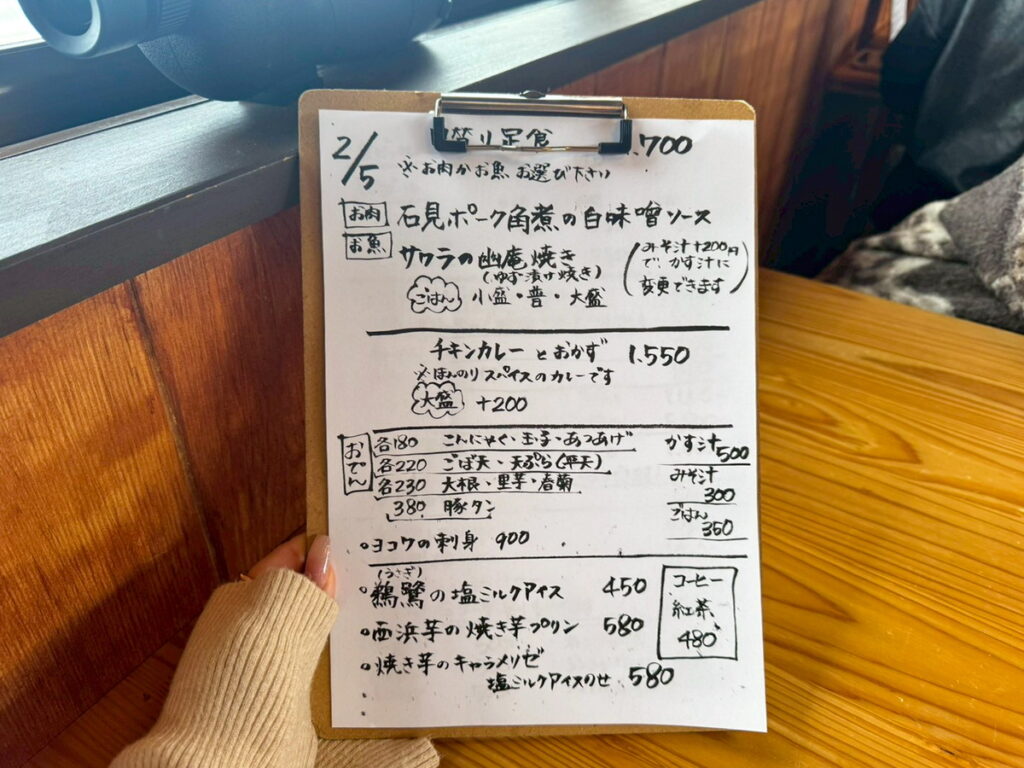 2/5
替り定食 .700
※お肉かお魚 お選び下さい
お肉 石見ポーク角煮の白味噌ソース
お魚 サワラの幽庵焼き
(ゆず漬け焼き)
(みそ汁+200円
で、かす汁に
変更できます)
ごはん 小盛・普・大盛
チキンカレーとおかず 1.550
※ほんのりスパイスのカレーです
大盛 +200
おでん
各180 こんにゃく・玉子・あつあげ
各220 ごぼ天・天ぷら(平天)
各230 大根・里芋・春菊
380 豚タン
かす汁 500
みそ汁 300
ごはん 350
・ヨコワの刺身 900
(うさぎ)
・鵜鷺の塩ミルクアイス 450
・西浜芋の焼き芋プリン 580
・焼き芋のキャラメリゼ
塩ミルクアイスのせ 580
コーヒー
紅茶
480